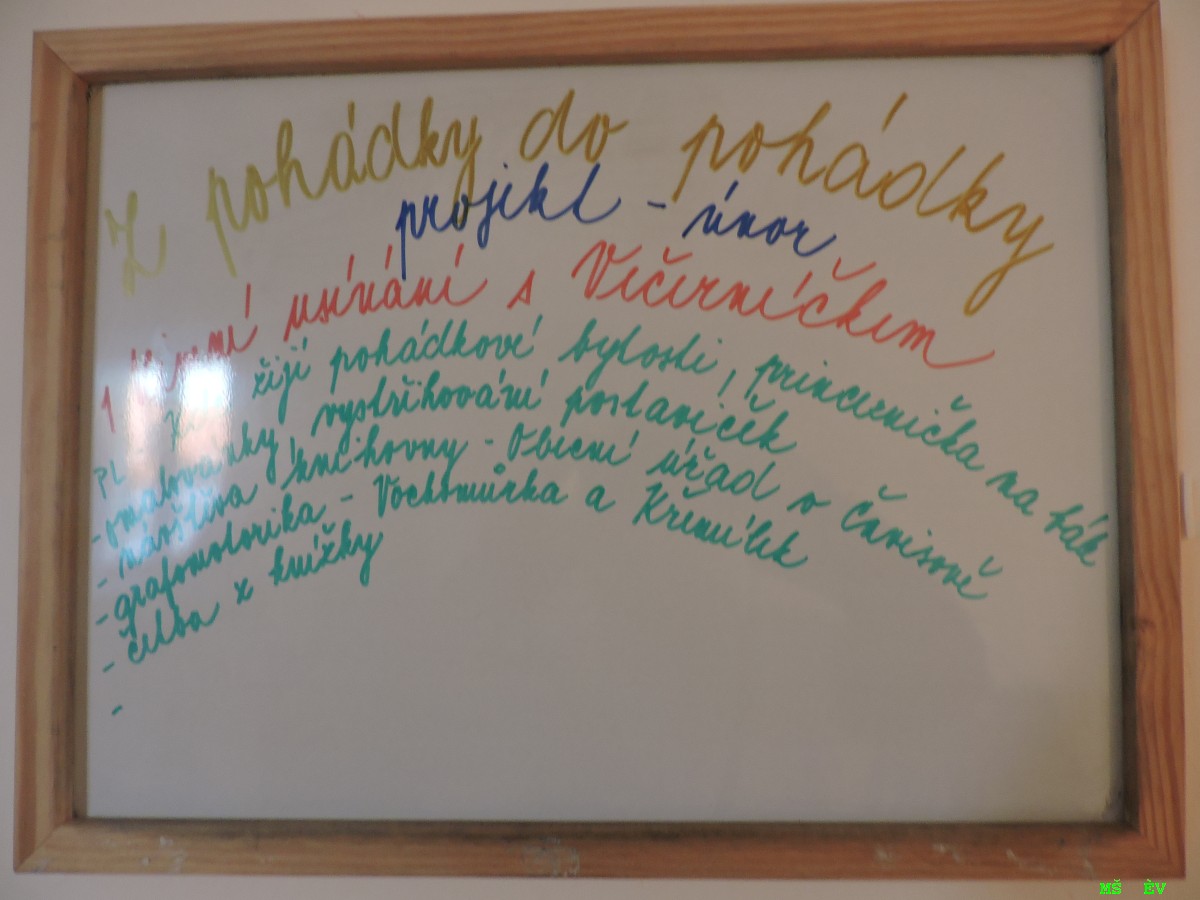 Z pohádky do pohádky
projekt - únor
1 usínání s Večerníčkem
PL - žijí pohádkové bytosti, princeznička na bák
- omalovánky vystřihování postaviček
- návštěva knihovny - Obecní úřad v Čavisově
- grafomotorika - Vochomůrka a Křemílek
- četba z knížky
-
MŠ ÈV